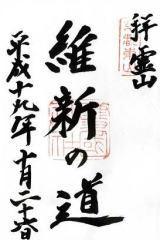 拝霊山
維新の道
平成十九年十月二十